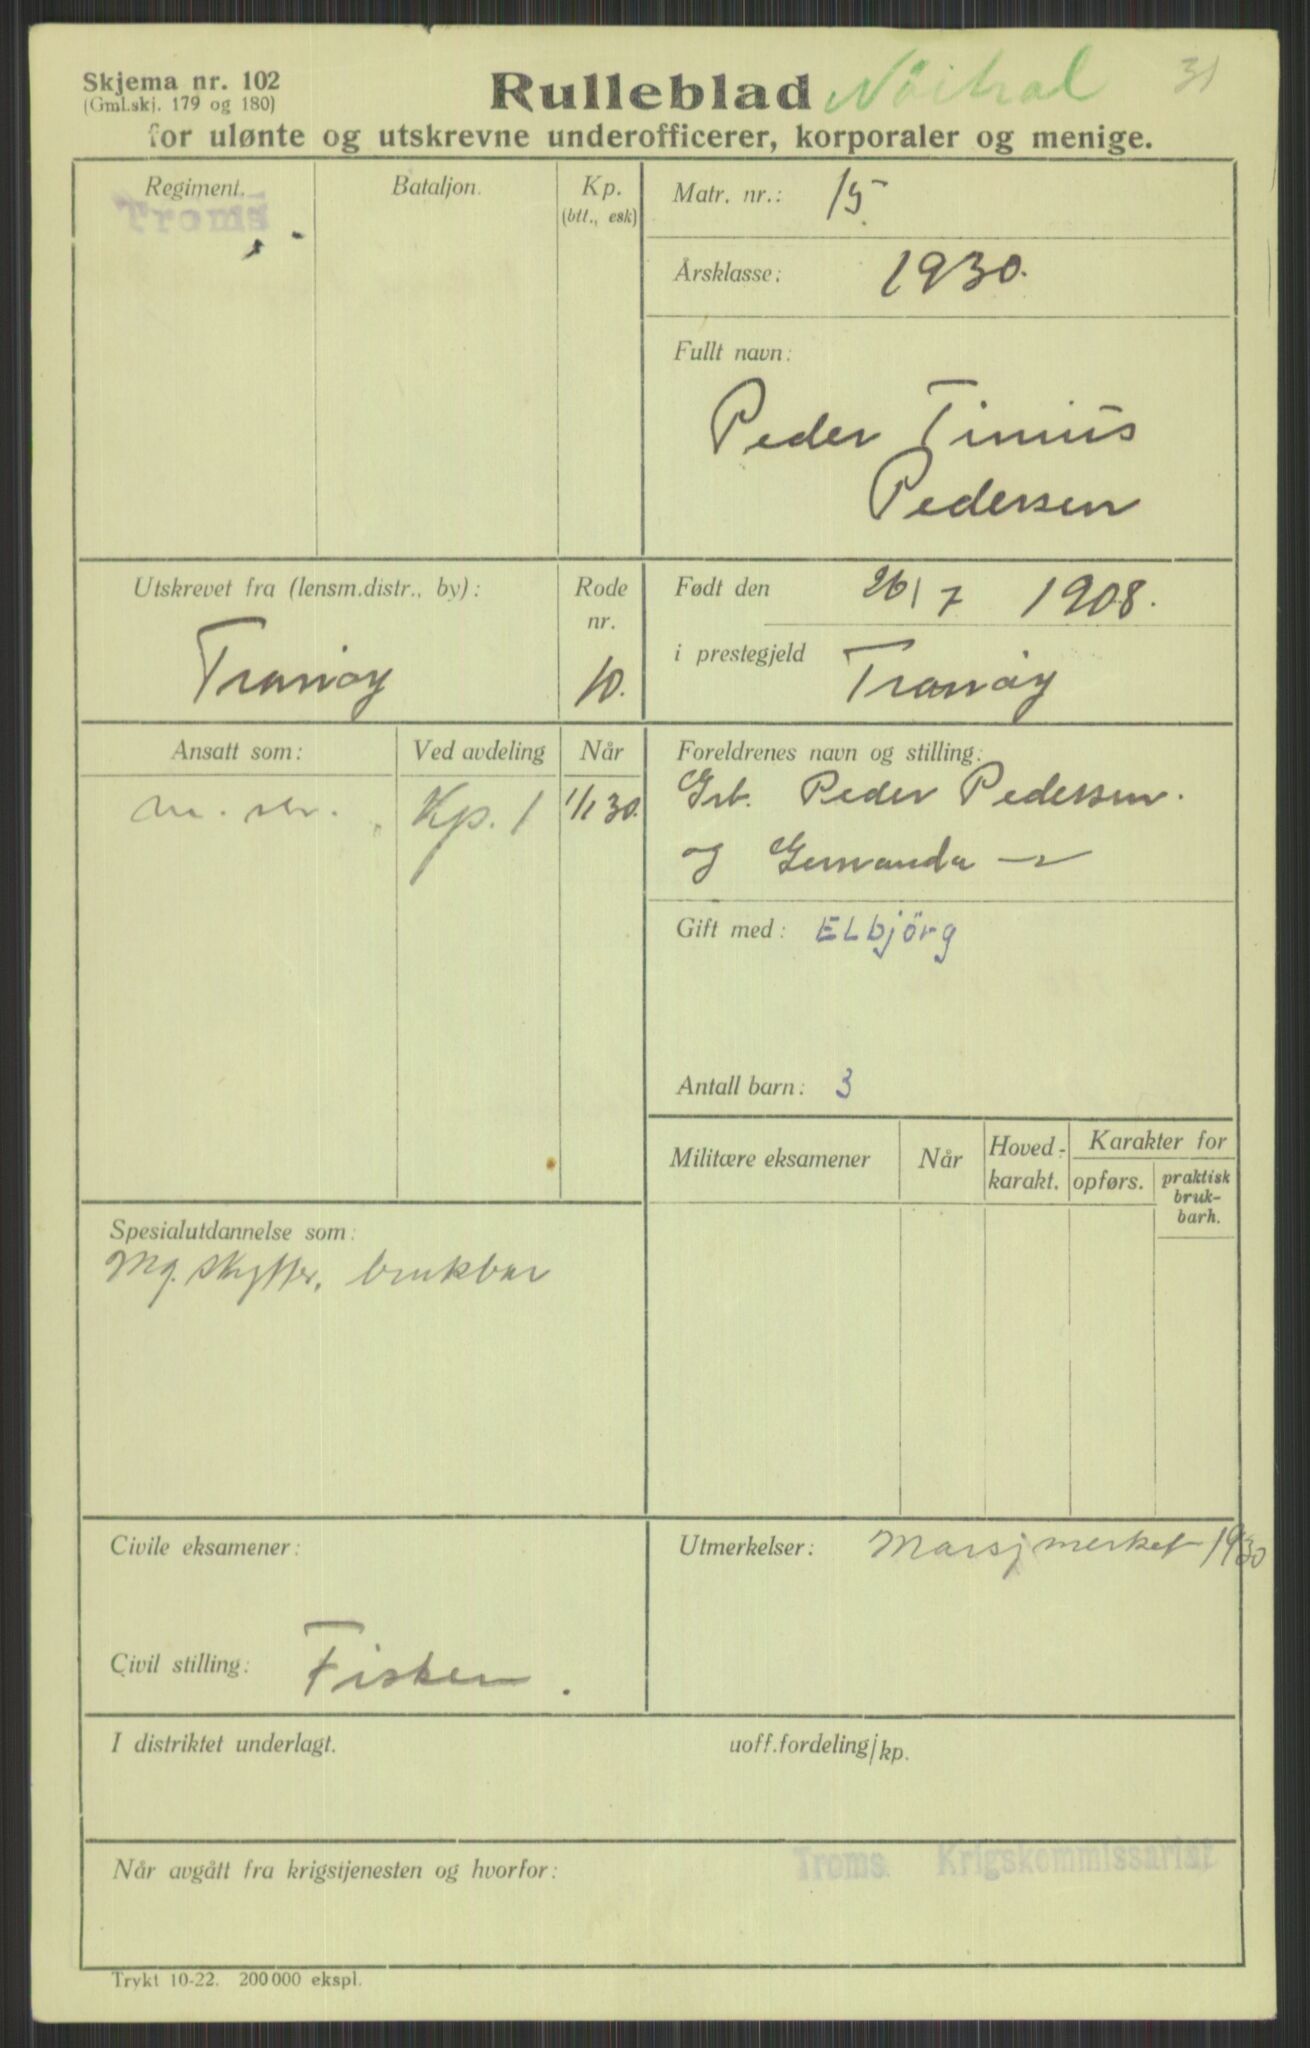 Skjema nr. 102
(Gml.skj. 179 og 180)
Rulleblad
31
for ulønte og utskrevne underofficerer, korporaler og menige.
Regiment.
Troms
Bataljon.
Kp.
(btt., esk)
Matr. nr.: 15.
Årsklasse: 1930.
Fullt navn:
Peder Tinius
Pedersen
Utskrevet fra (lensm.distr., by):
Tranöy
Rode
nr.
10.
Født den 26/7 1908.
i prestegjeld Tranöy
Ansatt som:
Ved avdeling
Når
Kp. 1
1/1 30.
Foreldrenes navn og stilling:
Grb. Peder Pedersen.
og
Gift med: Elbjörg
Antall barn: 3
Militære eksamener
Når
Hoved-
karakt.
Karakter for
opførs.
praktisk
bruk-
barh.
Spesialutdannelse som:
Mg. skytter, brukbar
Civile eksamener:
Civil stilling: Fisker.
Utmerkelser: Marsjmerket 1930
I distriktet underlagt.
uoff.fordeling/kp.
Når avgått fra krigstjenesten og hvorfor:
Troms Krigskommissariat
Trykt 10-22. 200 000 ekspl.